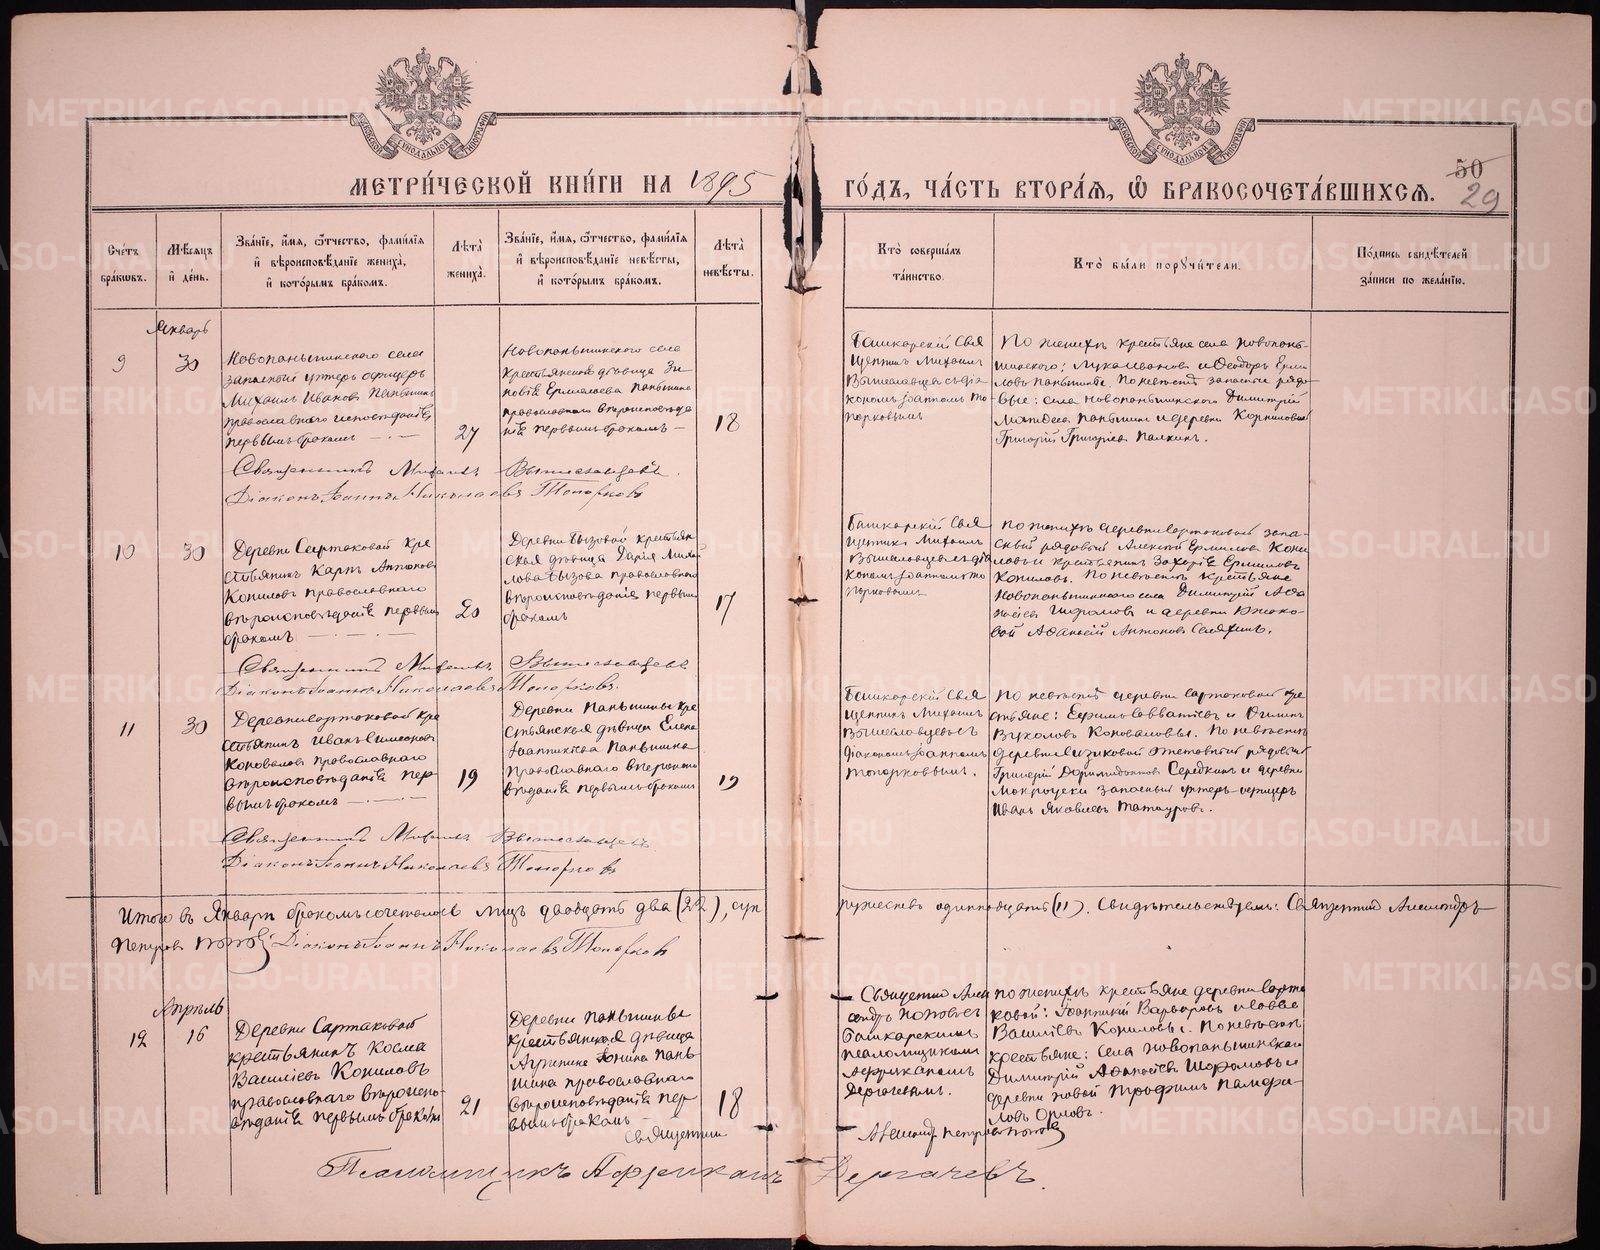 МЕТРИ́ЧЕСКОЙ КНИ́ГИ НА 1895 ГО́ДЪ, ЧА́СТЬ ВТОРА́Я, Ѡ БРАКОСОЧЕТА́ВШИХСЯ.
50
29
Сче́тъ бра́ковъ.
Мѣ́сяцъ и́ де́нь.
Зва́нїе, и́мя, ѻ́тчество, фами́лїя
и́ вѣроисповѣ́данїе жениха̀,
и́ кото́рымъ бра́комъ.
Лѣта̀ жениха̀.
Зва́нїе, и́мя, ѻ́тчество, фами́лїя
и́ вѣроисповѣ́данїе невѣ́сты,
и́ кото́рымъ бра́комъ.
Лѣта̀ невѣ́сты.
Кто̀ соверша́лъ
та́инство.
Кто̀ бы́ли поручи́тели.
По́дпись свидѣ́телей
за́писи по жела́нїю.
Январь
9
30
Новопаньшинскаго села
запасный унтеръ офицеръ
Михаилъ Ивановъ Паньшинъ
православнаго исповѣданія
первымъ бракомъ
27
Новопаньшинскаго села
крестьянская дѣвица Зи-
новія Ермилаева Паньшина
православнаго вѣроисповѣда
нія первымъ бракомъ
18
Башкарскій Свя
щенникъ Михаилъ
Вышеславцевъ съ діа
кономъ Іоанномъ То
порковымъ
По женихѣ крестьяне села Новопань-
шинскаго: Лука Ивановъ и Ѳеодоръ Ерми
ловъ Паньшины. По невѣстѣ запасные рядо-
вые: села Новопаньшинскаго Димитрій
Паньшинъ и деревни Корниловой
Григорій Григорьевъ Палкинъ.
Священникъ Михаилъ Вышеславцевъ.
Діаконъ Іоаннъ Николаевъ Топорковъ
10
30
Деревни Сартаковой кре
стьянинъ Карпъ Антоновъ
Копиловъ православнаго
вѣроисповѣданія первымъ
бракомъ
20
Деревни Бызовой крестьян-
ская дѣвица Дарья Михаи-
лова Бызова православнаго
вѣроисповѣданія первымъ
бракомъ
17
Башкарскій Свя
щенникъ Михаилъ
Вышеславцевъ съ діа
кономъ Іоанномъ То
порковымъ
По женихѣ деревни Сартаковой запа-
сный рядовый Алексѣй Ермиловъ Копи
ловъ и крестьянинъ Захарія Ермиловъ
Копиловъ. По невѣстѣ крестьяне
Новопаньшинскаго села Димитрій Аѳа
насіевъ и деревни
Аѳанасій Антоновъ
Священникъ Михаилъ Вышеславцевъ
Діаконъ Іоаннъ Николаевъ Топорковъ.
11
30
Деревни Сартаковой кре
стьянинъ Иванъ Симеоновъ
Коноваловъ православнаго
вѣроисповѣданія пер-
вымъ бракомъ
19
Деревни Паньшины кре
стьянская дѣвица Елена
Іоанникіева Паньшина
православнаго вѣроиспо
вѣданія первымъ бракомъ
19
Башкарскій Свя
щенникъ Михаилъ
Вышеславцевъ съ
діакономъ Іоанномъ
Топорковымъ.
По невѣстѣ деревни Сартаковой кре
стьяне: Ефимъ Савватіевъ и
Вуколовъ Коноваловы. По невѣстѣ
деревни рядовый
Григорій Середкинъ и деревни
Мокроуски запасный унтеръ-офицеръ
Иванъ Яковлевъ Татауровъ.
Священникъ Михаилъ Вышеславцевъ
Діаконъ Іоаннъ Николаевъ Топорковъ
Итого въ Январѣ бракомъ сочеталось лицъ двадцать два (22), суп
ружествъ одиннадцать (11). Свидѣтельствуемъ: Священникъ Александръ
Петровъ Поповъ Діаконъ Іоаннъ Николаевъ Топорковъ
Апрѣль
12
16
Деревни Сартаковой
крестьянинъ Косма
Василіевъ Копиловъ
православнаго вѣроиспо-
вѣданія первымъ бракомъ
21
Деревни Паньшины
крестьянская дѣвица
Агрипина Іонина Пань-
шина православнаго
вѣроисповѣданія пер-
вымъ бракомъ
18
Священникъ Алек
сандръ Поповъ съ
башкарскимъ
псаломщикомъ
Африканомъ
Дергачевымъ.
По женихѣ крестьяне деревни Сарта
ковой: Іоанникій Варваровъ и Савва
Василіевъ Копиловы. По невѣстѣ
крестьяне: села Новопаньшинскаго
Димитрій Аѳанасіевъ и
деревни Новой Трофимъ Памфи-
ловъ Орловъ.
Священникъ Александръ Петровъ Поповъ
Псаломщикъ Африканъ Дергачевъ.
METRIKI.GASO-URAL.RU